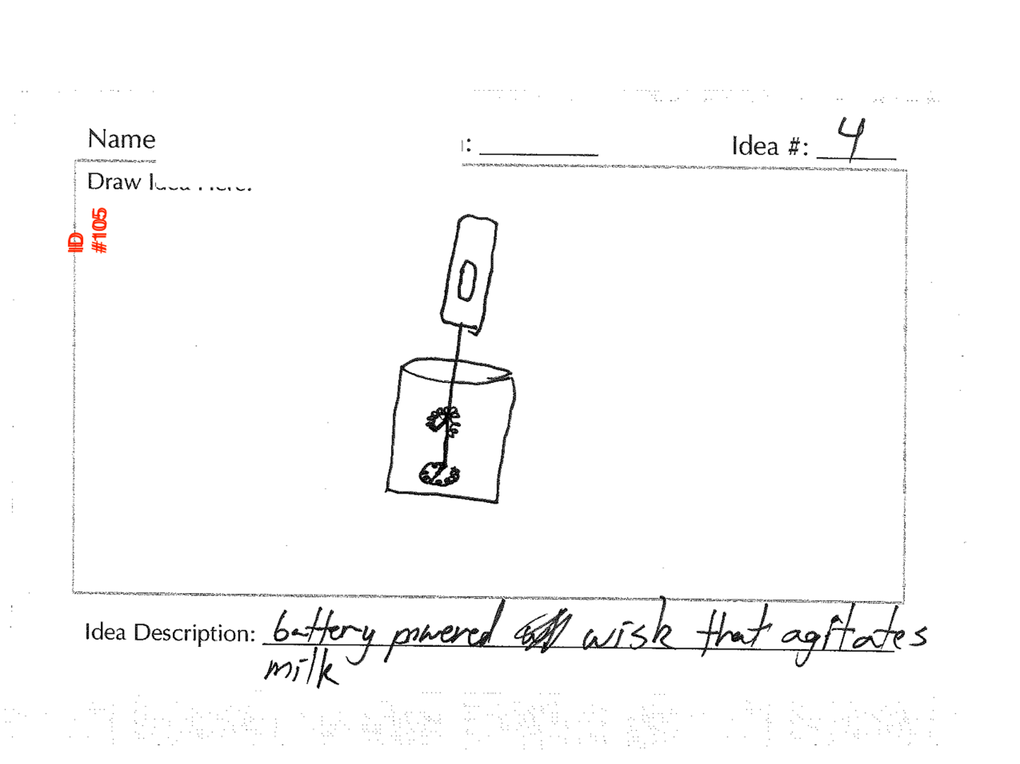 Name : Idea #: 4
Draw Idea Here:
ID #105
Idea Description: battery powered wisk that agitates
milk